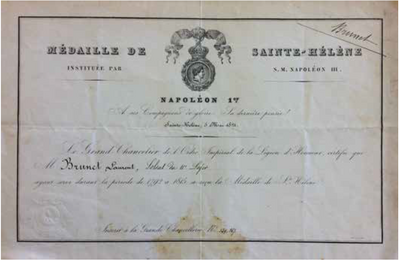 Brunet
MÉDAILLE DE SAINTE-HÉLÈNE
INSTITUÉE PAR S. M. NAPOLÉON III.
NAPOLÉON 1er
A ses Compagnons de gloire, Sa dernière pensée!
Sainte-Hélène, 5 Mai 1821.
Le Grand Chancelier de l'Ordre Impérial de la Légion d'Honneur, certifie que
M Brunet Laurent, Soldat du
ayant servi durant la période de 1792 à 1815, a reçu la Médaille de Ste Hélène.
Inscrit à la Grande Chancellerie, No